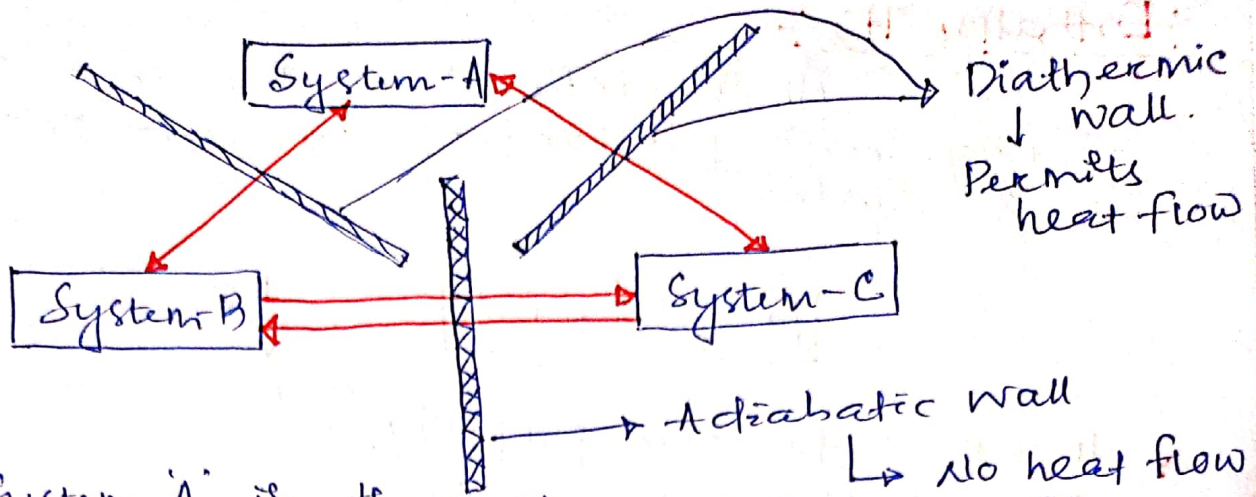 System-A
Diathermic
wall.
Permits
heat flow
System-B
System-C
Adiabatic wall
No heat flow